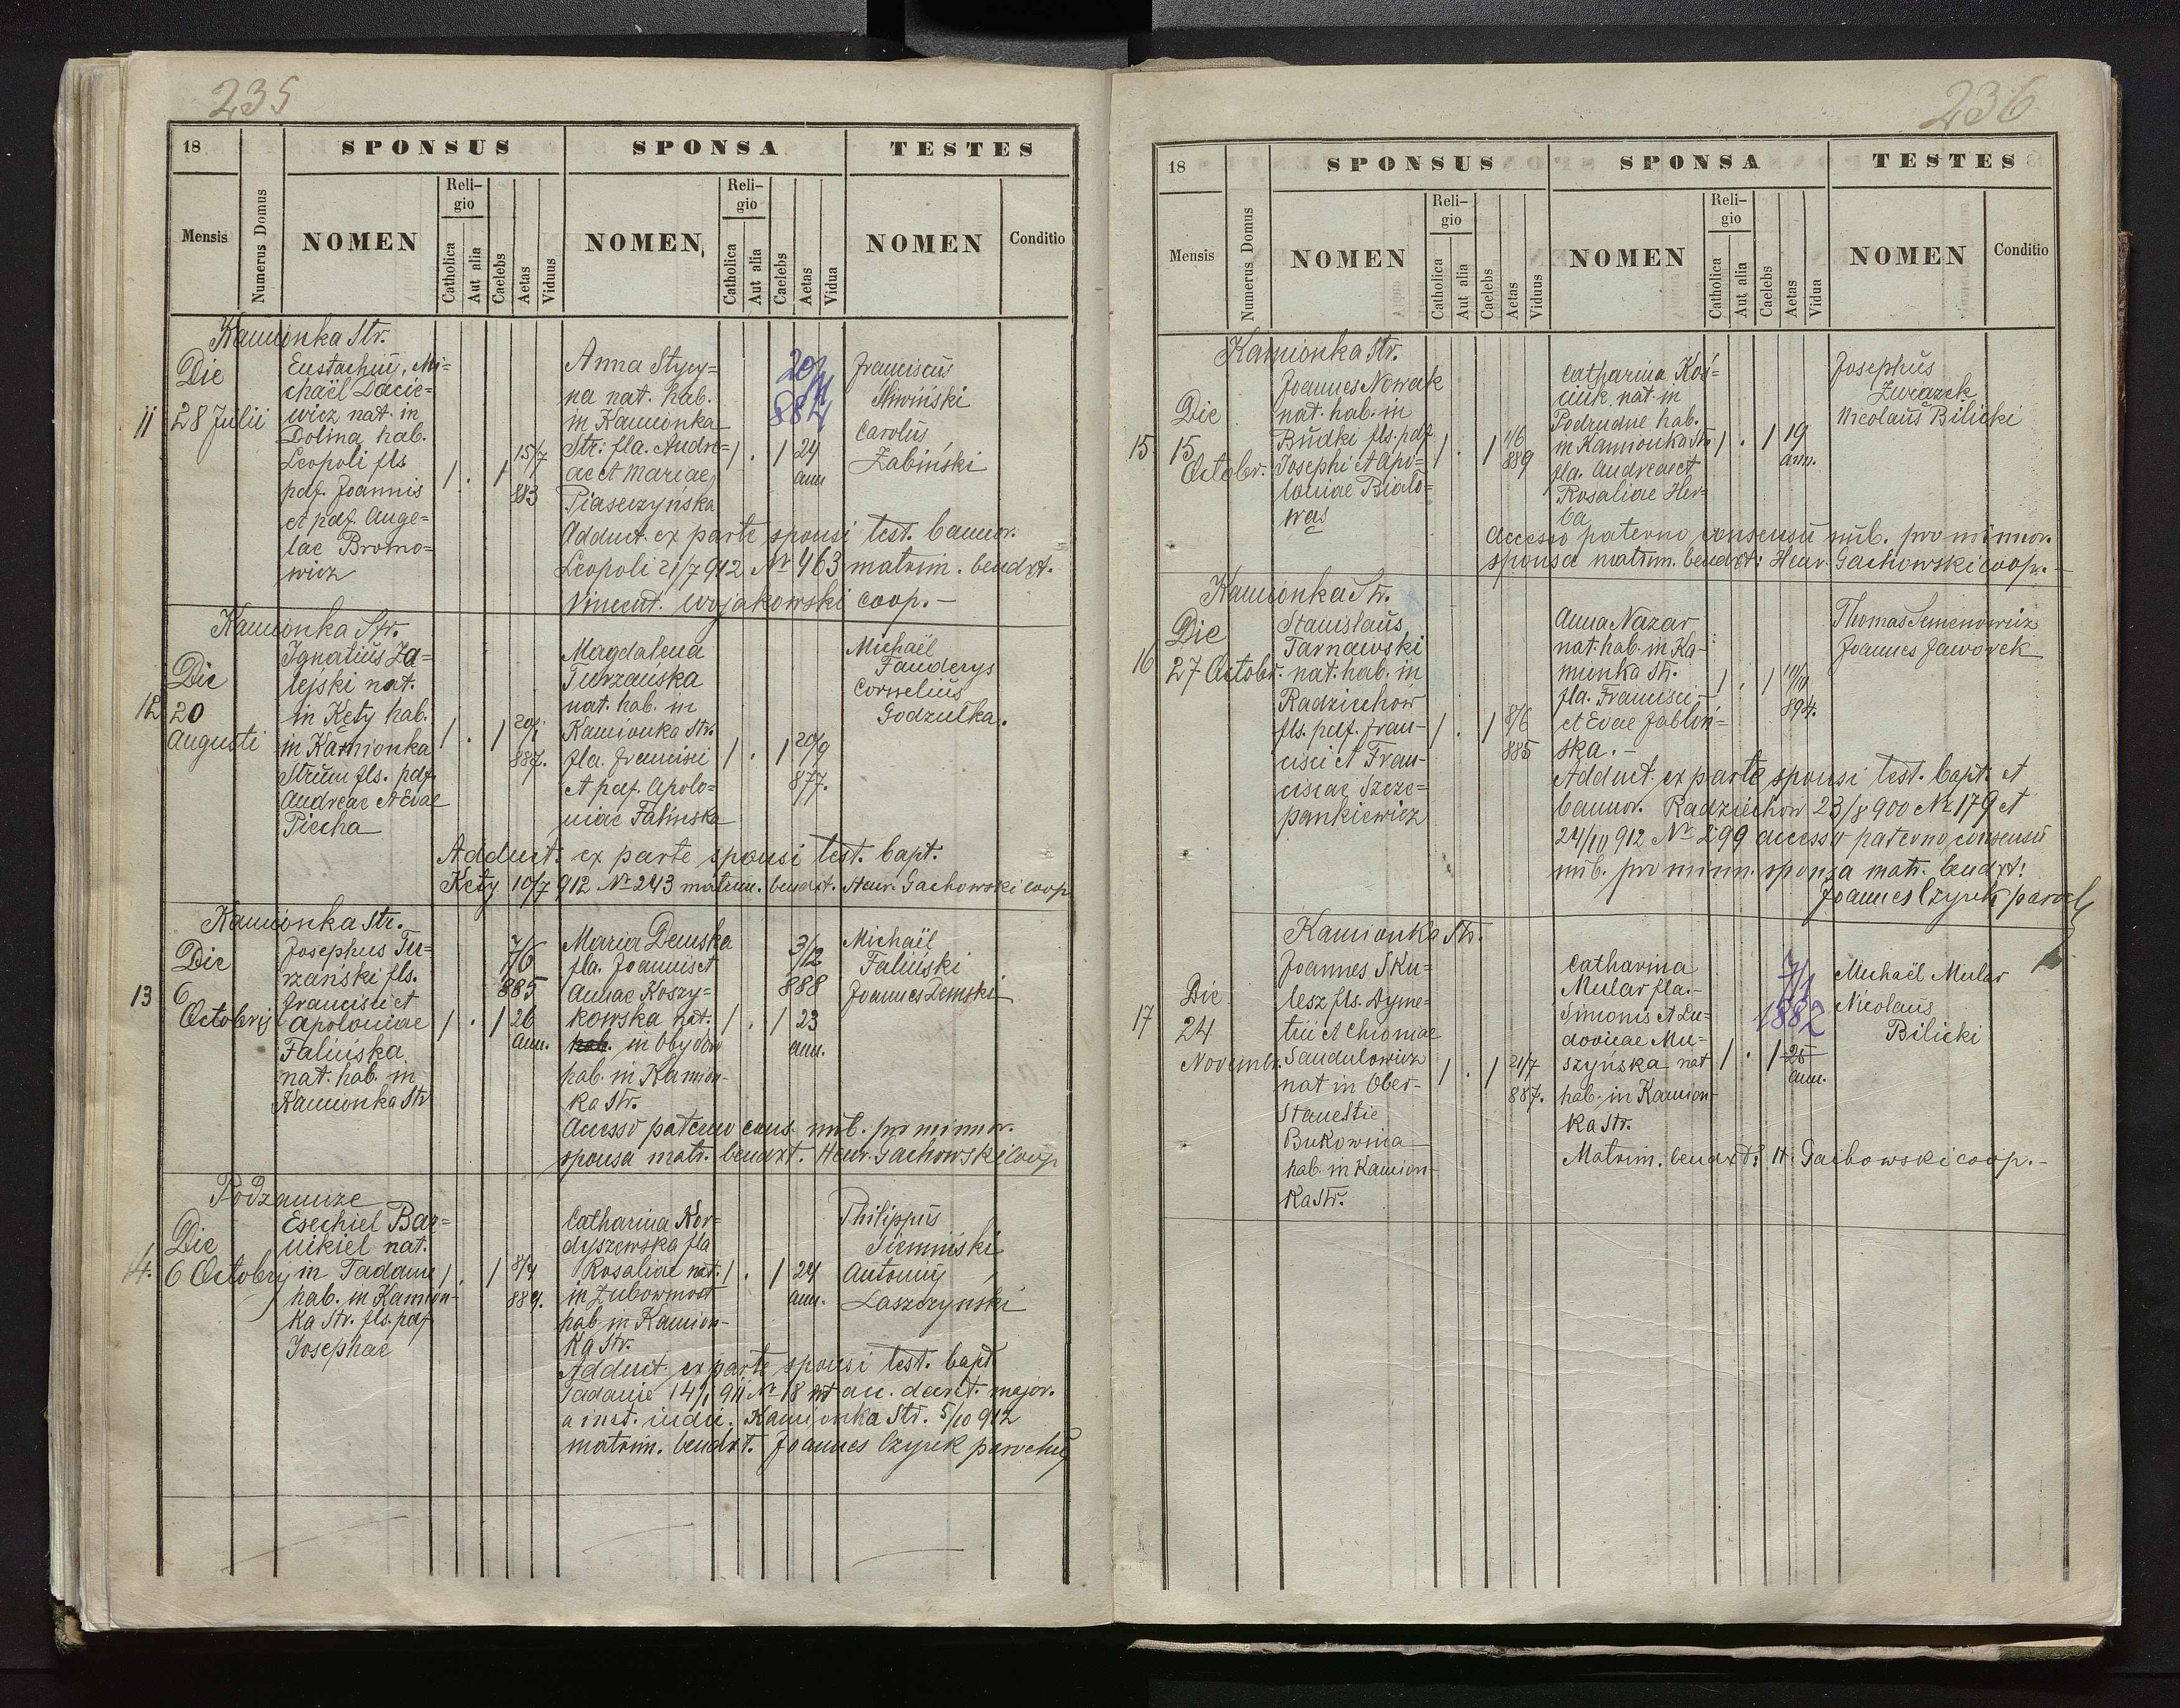 235
18
SPONSUS
SPONSA
TESTES
Mensis
Numerus Domus
NOMEN
Religio
Catholica
Aut alia
Caelebs
Aetas
Viduus
NOMEN
Religio
Catholica
Aut alia
Caelebs
Aetas
Vidua
NOMEN
Conditio
Kamionka Str.
11
Die
28 Julii
Eustachius, Mi=
chaël Dacie=
wicz nat. in
Dolina hab.
Leopoli fls
pdf. Joannis
et pdf. Ange=
lae Bromo=
wicz
1 . 1 15/7
883
Anna Stypy=
na nat. hab.
in Kamionka
Str: fla. Andre=
ae et Mariae
Piaseczyńska
1 . 1 24
ann
20/11
884
Franciscus
Śliwiński
Carolus
Żabiński
Adduct. ex parte sponsi test. bannor.
Leopoli 21/7 912 Nr 463 matrim. bendxt.
Vincent. Wojakowski coop. —
Kamionka Str.
12
Die
20
Augusti
Ignatius Za=
lejski nat.
in Kęty hab.
in Kamionka
Strum fls. pdf.
Andreae et Evae
Piecha
1 . 1 20/1
887.
Magdalena
Turzańska
nat. hab. in
Kamionka Str.
fla. Francisci
et pdf. Apolo=
niae Falińska
1 . 1 20/9
877.
Michaël
Fanderys
Cornelius
Godzulka.
Adduct. ex parte sponsi test. bapt.
Kęty 10/7 912 Nr 243 matrim. bendxt. Henr. Gachowski coop
Kamionka Str.
13
Die
6
Octobris
Josephus Tu=
rzański fls.
Francisci et
Apoloniae
Falińska
nat. hab. in
Kamionka Str
1 . 1 26
ann.
7/6
885
Maria Demska
fla. Joannis et
Annae Koszy=
kowska nat.
hab. in Obydów
hab. in Kamion-
ka Str.
1 . 1 23
ann.
3/12
888
Michaël
Faliński
Joannes Demski
Accesso paterno cons. nub. pro minor.
sponsa matr. bendxt. Henr. Gachowski coop
Podzamcze
14.
Die
6 Octobris
Esechiel Bar=
nikiel nat.
in Tadanie
hab. in Kamion-
ka Str. fls. pdf.
Josephae
1 . 1 8/4
889.
Catharina Kor=
dyszewska fla
Rosaliae nat.
in Zubowmost
hab in Kamion-
ka Str.
1 . 1 24
ann.
Philippus
Siemiński
Antonius
Laszczynski
Adduct. ex parte sponsi test. bapt.
Tadanie 14/1 911 Nr 18 et ac. decret. major.
a inst. iudic. Kamionka Str. 5/10 912
matrim. bendxt. Joannes Czyrek parochus
236
18
SPONSUS
SPONSA
TESTES
Mensis
Numerus Domus
NOMEN
Religio
Catholica
Aut alia
Caelebs
Aetas
Viduus
NOMEN
Religio
Catholica
Aut alia
Caelebs
Aetas
Vidua
NOMEN
Conditio
Kamionka Str.
15
Die
15
Octobr.
Joannes Nowak
nat. hab. in
Budki fls. pdf.
Josephi et Apo=
loniae Biało=
wąs
1 . 1
889
Catharina Koś=
ciuk nat. in
Podrudne hab.
in Kamionka Str
fla. Andreae et
Rosaliae Her=
ba
1 . 1 19
ann.
Josephus
Zwrazek
Nicolaus Bilicki
Accesso paterno consensu nub. pro minor.
sponsa matrim. bendxt: Henr. Gachowski coop. —
Kamionka Str.
16
Die
27 Octobr.
Stanislaus
Tarnawski
nat. hab. in
Radziechów
fls. pdf. Fran-
cisci et Fran-
ciscae Szcze=
pankiewicz
1 . 1 8/6
885
Anna Nazar
nat. hab. in Ka-
mionka Str.
fla. Francisci
et Evae Jabłoń=
ska. —
1 . 1 10/10
894.
Thomas Semenowicz
Joannes Jaworek
Adduct. ex parte sponsi test. bapt. et
bannor. Radziechów 23/8 900 Nr 179 et
24/10 912 Nr 299 accesso paterno consensu
nub. pro minn. sponza matr. bendxt:
Joannes Czyrek paroch
Kamionka Str.
17
Die
24
Novembr.
Joannes Sku=
lesz fls. Dyme=
trii et Chiomae
Sandulowicz
nat in Ober-
Stanestie
Bukowina
hab. in Kamion-
ka Str.
1 . 1 21/7
887.
Catharina
Mular fla.
Simonis et Lu=
dovicae Mu=
szyńska nat
hab. in Kamion-
ka Str.
1 . 1 25
ann.
7/1
1882
Michaël Mular
Nicolaus
Bilicki
Matrim. bendxt: H. Gachowski coop. —